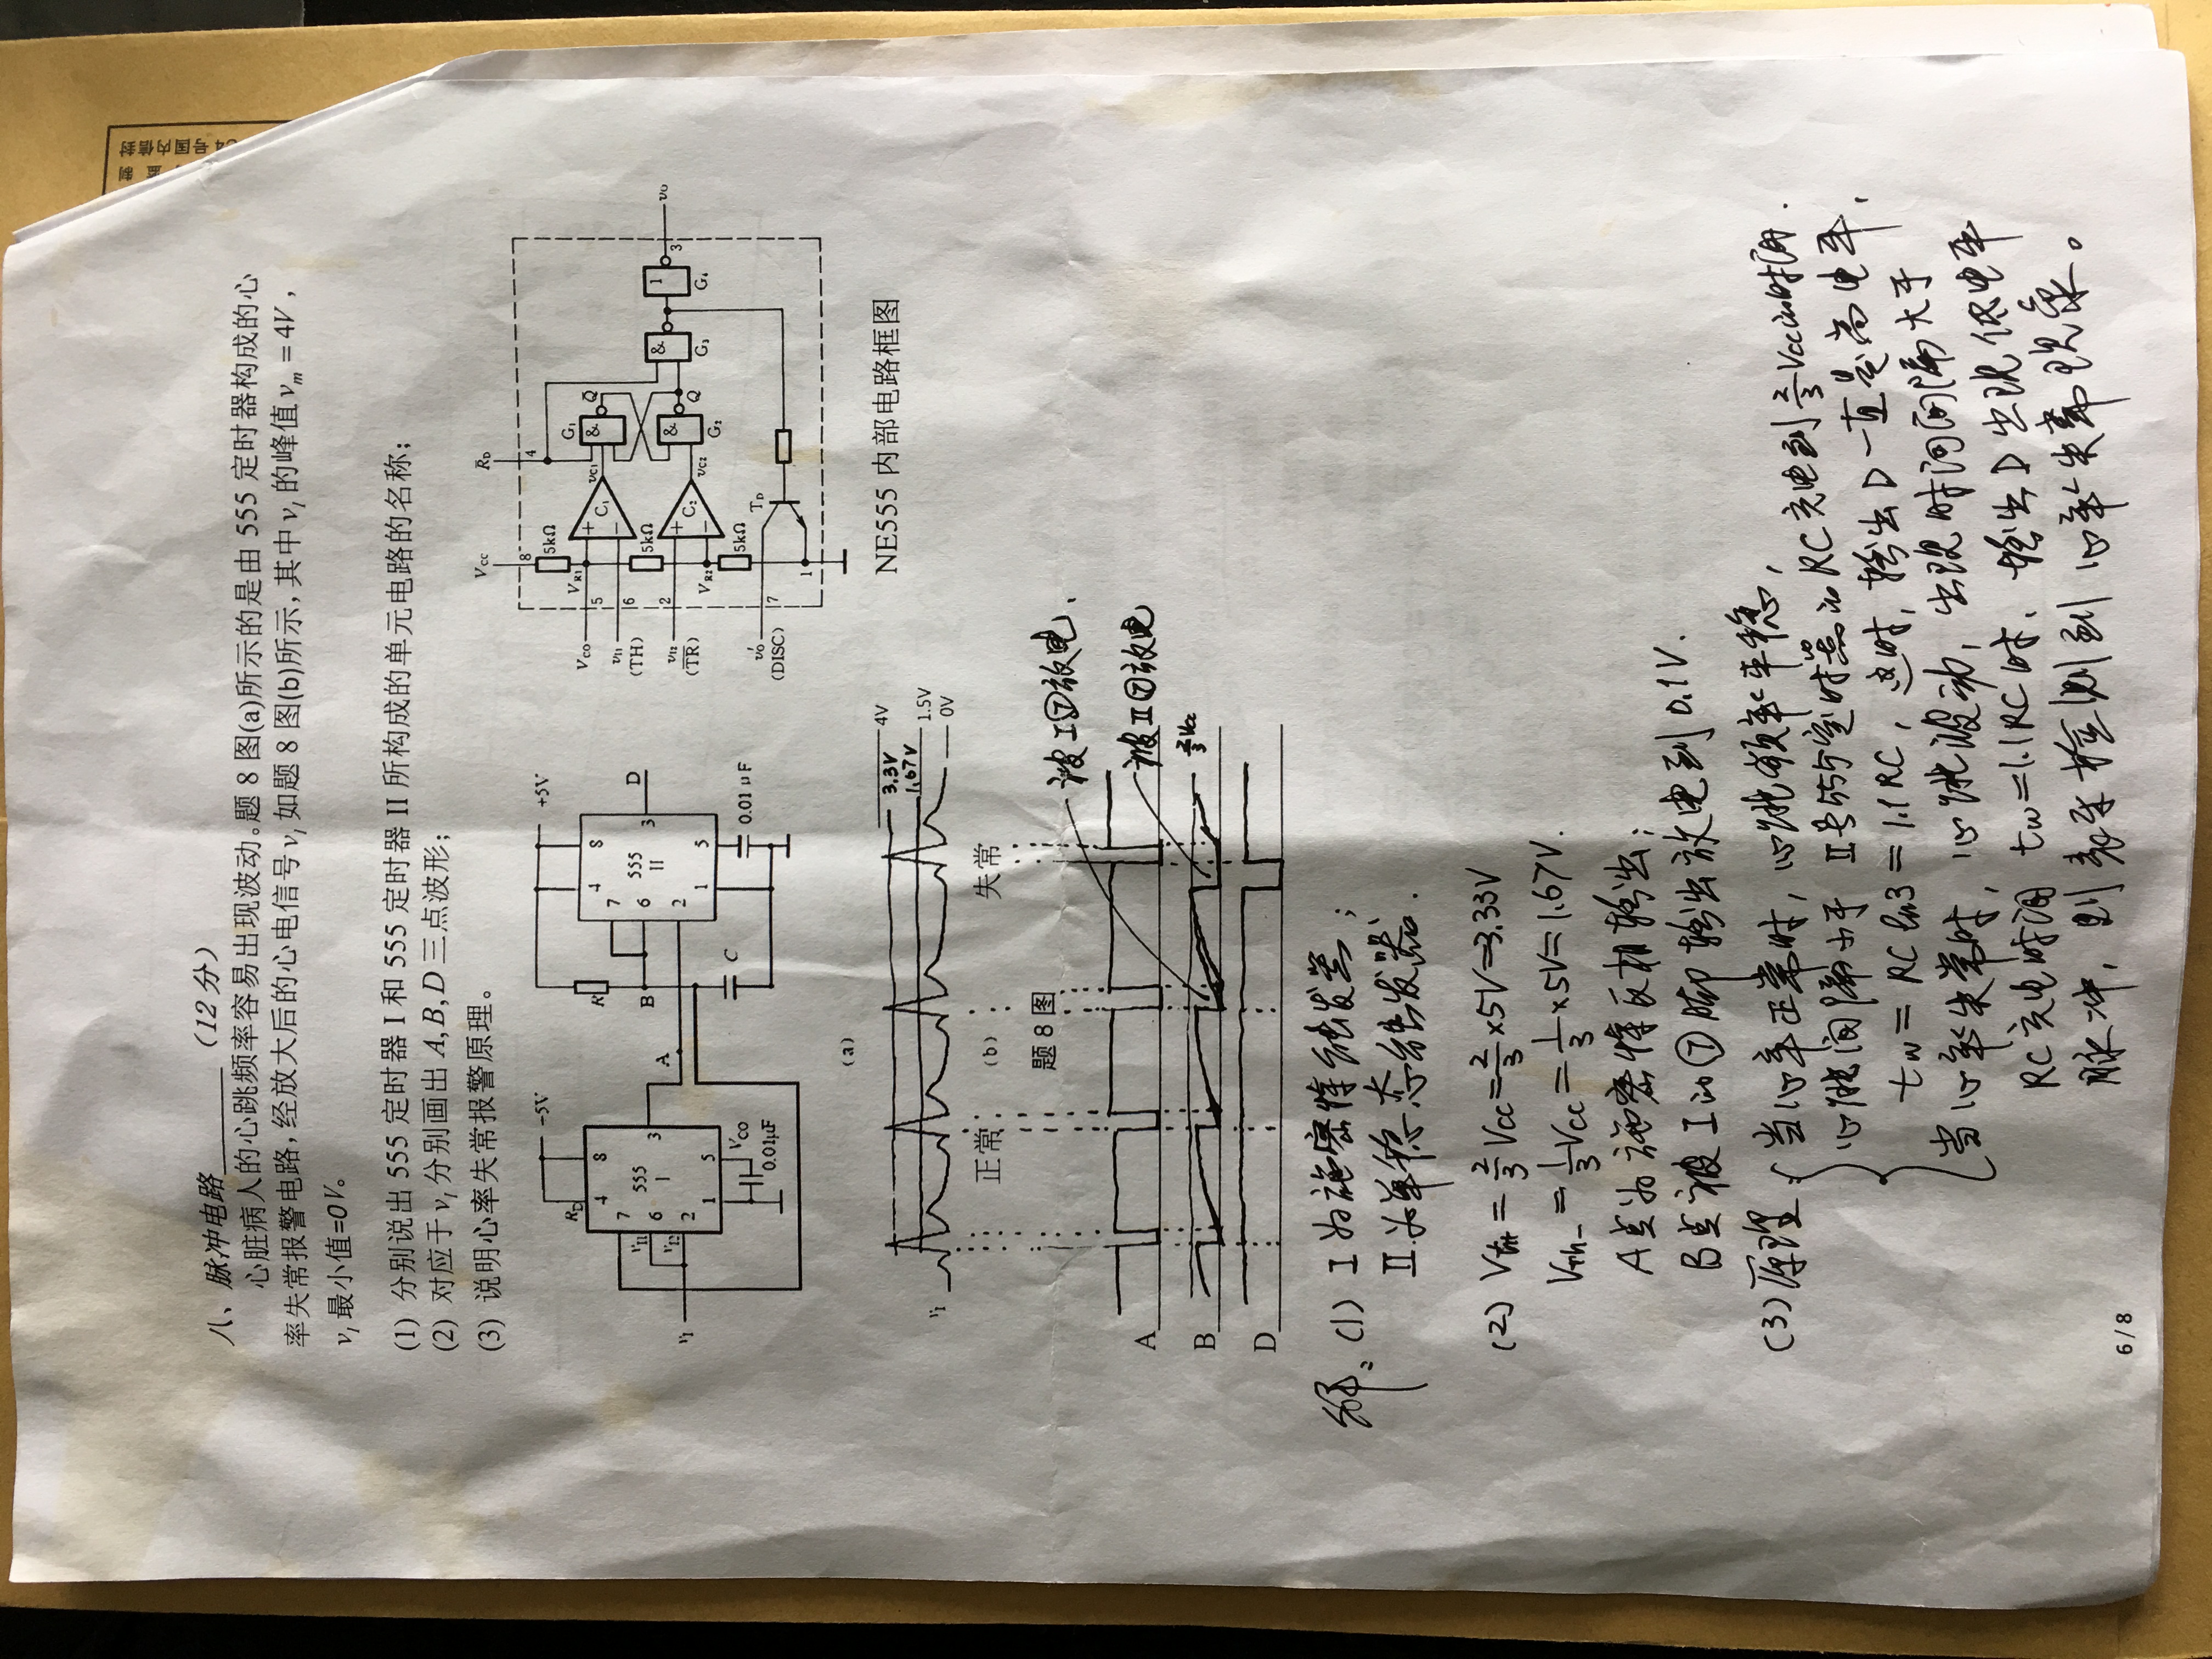 监 制
C4号国内信封
八、脉冲电路________（12分）
心脏病人的心跳频率容易出现波动。题8图(a)所示的是由555定时器构成的心
率失常报警电路，经放大后的心电信号v_I如题8图(b)所示，其中v_I的峰值v_m = 4V，
v_I最小值=0V。
(1) 分别说出555定时器 I 和555定时器 II 所构成的单元电路的名称；
(2) 对应于v_I分别画出A, B, D三点波形；
(3) 说明心率失常报警原理。
−5V
R_D
4 8
7
v_I1
6
555
I
3
v_I2
2
v_I
1 5
V_CO
0.01μF
A
+5V
R
B
4 8
7
6
555
II
3
D
2
1 5
C
0.01μF
(a)
V_CC
R_D
8
4
5kΩ
V_CO
5
V_R1
C₁
v_C1
&
G₁
Q̅
v_I1
(TH)
6
5kΩ
v_I2
(T̅R̅)
2
V_R2
C₂
v_C2
&
G₂
Q
&
G₃
1
G₄
3
v_O
5kΩ
v'_O
(DISC)
7
T_D
1
NE555 内部电路框图
4V
3.3V
1.67V
1.5V
0V
v_I
正常
(b)
失常
题8图
被I⑦放电.
A
被II⑦放电
B
2/3 Vcc
D
解: (1) I为施密特触发器;
II为单稳态触发器.
(2) Vth+ = 2/3 Vcc = 2/3 ×5V=3.33V
Vth- = 1/3 Vcc = 1/3 ×5V=1.67V.
A点为施密特反相输出;
B点被I的⑦脚输出放电到0.1V.
(3) 原理 { 当心率正常时, 心跳频率平稳,
心跳间隔小于 II号555定时器的RC充电到 2/3 Vcc的时间.
tw = RC ln3 = 1.1RC, 这时, 输出D一直是高电平,
当心率失常时, 心跳波动, 出现时间间隔大于
RC充电时间 tw=1.1RC时, 输出D出现低电平
脉冲, 则表示检测到心率失常现象。
6 / 8